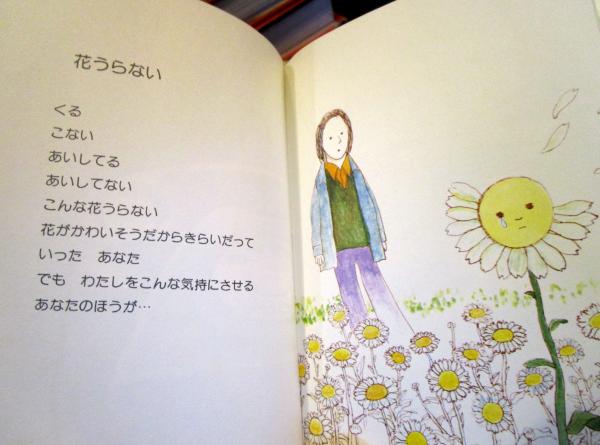 花うらない
くる
こない
あいしてる
あいしてない
こんな花うらない
花がかわいそうだからきらいだって
いった　あなた
でも　わたしをこんな気持にさせる
あなたのほうが…